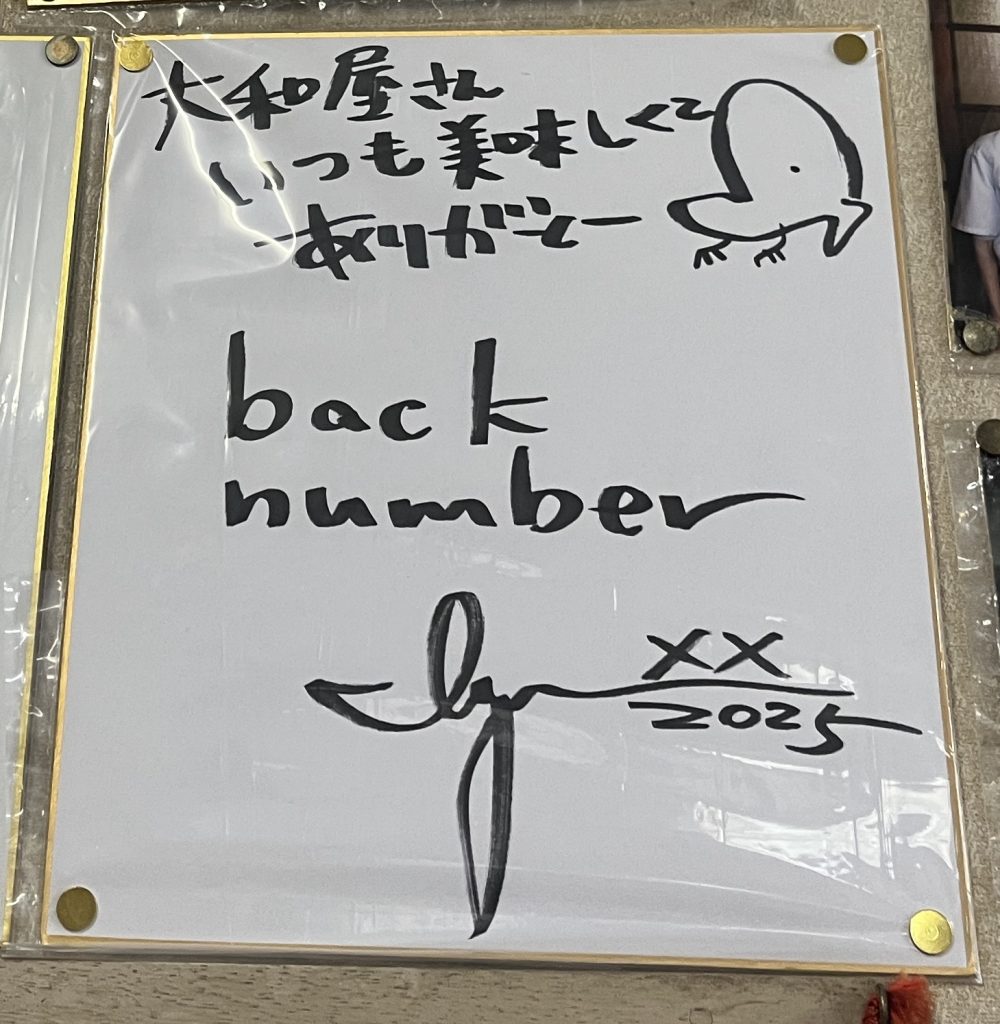 大和屋さん
いつも美味しくて
ありがとー
back
number
XX
2025